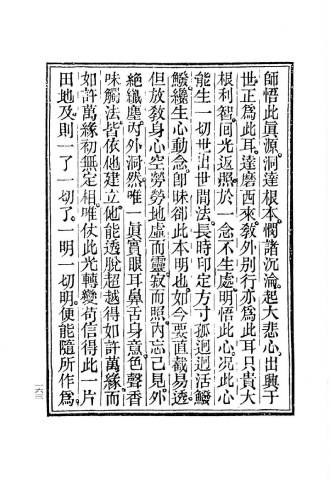 師悟此眞源。洞達根本。憫諸沉淪。起大悲心。出興于
世。正爲此耳。達磨西來。敎外別行。亦爲此耳。只貴大
根利智。囘光返照。於一念不生處。明悟此心。況此心
能生一切世出世間法。長時印定。方寸孤迥迥活鱍
鱍。纔生心動念。卽昧卻此本明也。如今要直截易透。
但放敎身心空勞勞地。虛而靈。寂而照。內忘己見。外
絕纖塵。內外洞然。唯一眞實。眼耳鼻舌身意。色聲香
味觸法。皆依他建立。他能透脫超越得如許萬緣。而
如許萬緣。初無定相。唯仗此光轉變。苟信得此一片
田地及。則一了一切了。一明一切明。便能隨所作爲。
一六三